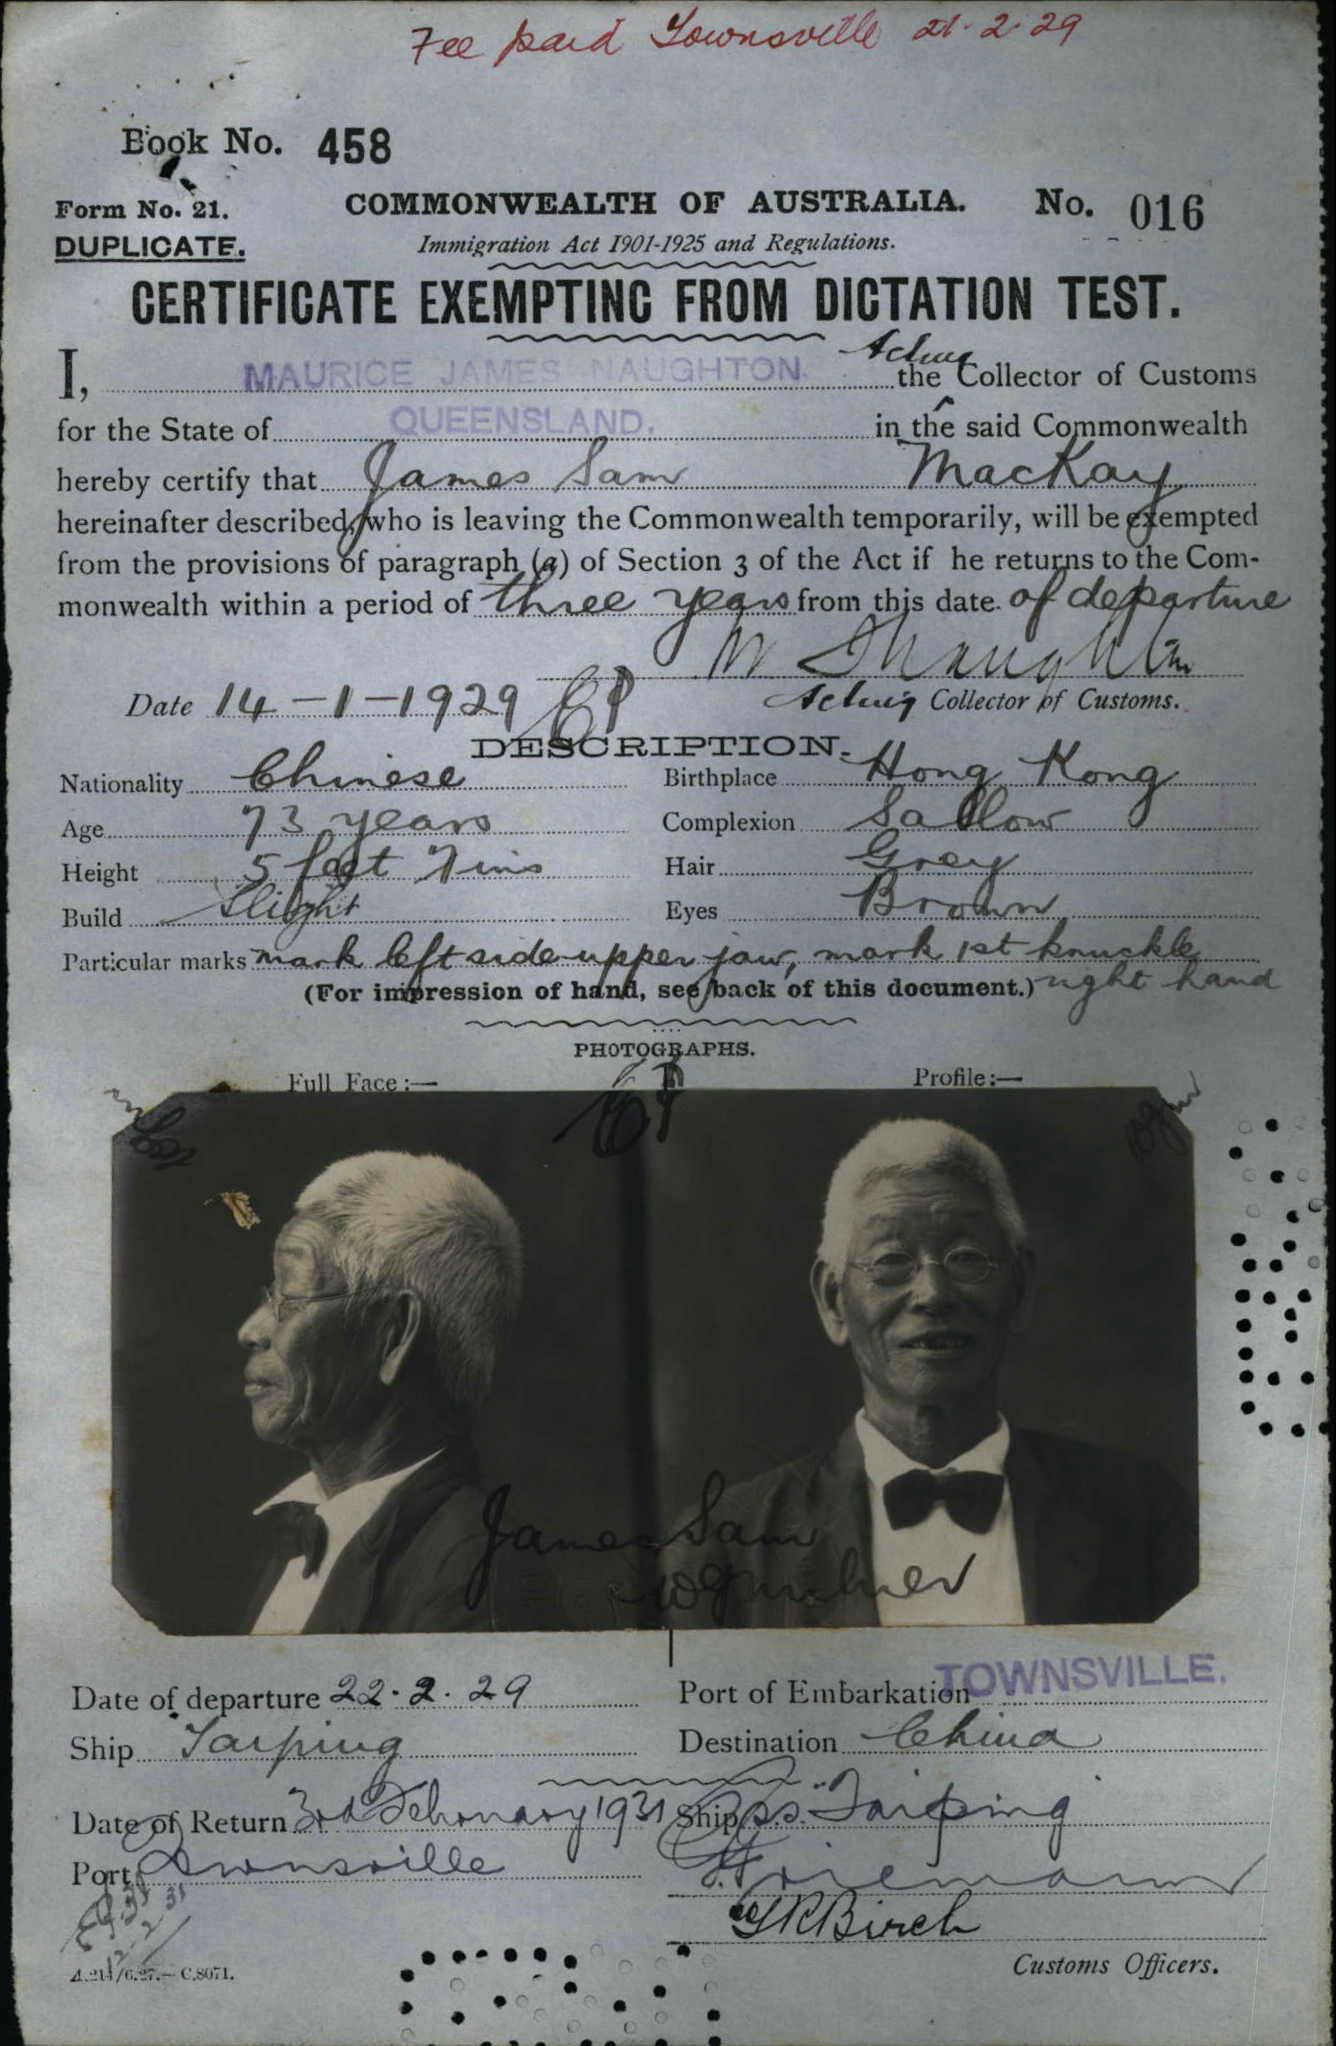 Fee paid Townsville 21·2·29
Book No. 458
Form No. 21.
COMMONWEALTH OF AUSTRALIA.
No. 016
DUPLICATE.
Immigration Act 1901-1925 and Regulations.
CERTIFICATE EXEMPTING FROM DICTATION TEST.
I, MAURICE JAMES NAUGHTON the Acting Collector of Customs
for the State of QUEENSLAND. in the said Commonwealth
hereby certify that James Sam MacKay
hereinafter described, who is leaving the Commonwealth temporarily, will be exempted
from the provisions of paragraph (a) of Section 3 of the Act if he returns to the Com-
monwealth within a period of three years from this date of departure
Date 14-1-1929
Acting Collector of Customs.
DESCRIPTION.
Nationality Chinese
Birthplace Hong Kong
Age 73 years
Complexion Sallow
Height 5 feet 7 ins
Hair Grey
Build Slight
Eyes Brown
Particular marks mark left side upper jaw, mark 1st knuckle
right hand
(For impression of hand, see back of this document.)
PHOTOGRAPHS.
Full Face:—
Profile:—
James Sam
Date of departure 22·2·29
Port of Embarkation TOWNSVILLE.
Ship Taiping
Destination China
Date of Return 3rd February 1931
Ship s.s. "Taiping
Port Townsville
GRBirch
12·2·31
A.214/6.27.—C.8071.
Customs Officers.